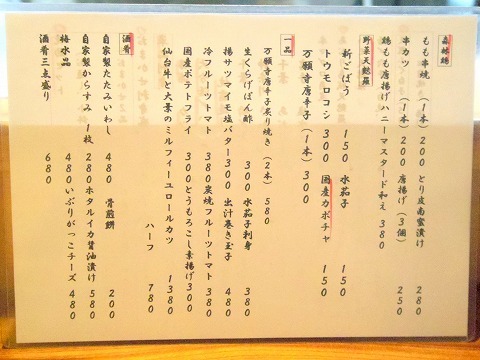 森林鶏
もも串焼(1本)200 とり皮南蛮漬け 280
串カツ(1本)200 唐揚げ(3個) 250
鶏もも唐揚げハニーマスタード和え 380
野菜天麩羅
新ごぼう 150 水茄子 150
トウモロコシ 300 国産カボチャ 150
万願寺唐辛子(1本)300
一品
万願寺唐辛子炙り焼き(2本)580
生くらげぽん酢 300 水茄子刺身 380
揚サツマイモ塩バター300 出汁巻き玉子 480
冷フルーツトマト 380 炭焼フルーツトマト 380
国産ポテトフライ 300 とうもろこし素揚げ 300
仙台牛と大葉のミルフィーユロールカツ 1380
ハーフ 780
酒肴
自家製たたみいわし 480 骨煎餅 200
自家製からすみ 1枚 280 ホタルイカ醤油漬け 580
梅水晶 480 いぶりがっこチーズ 480
酒肴三点盛り 680